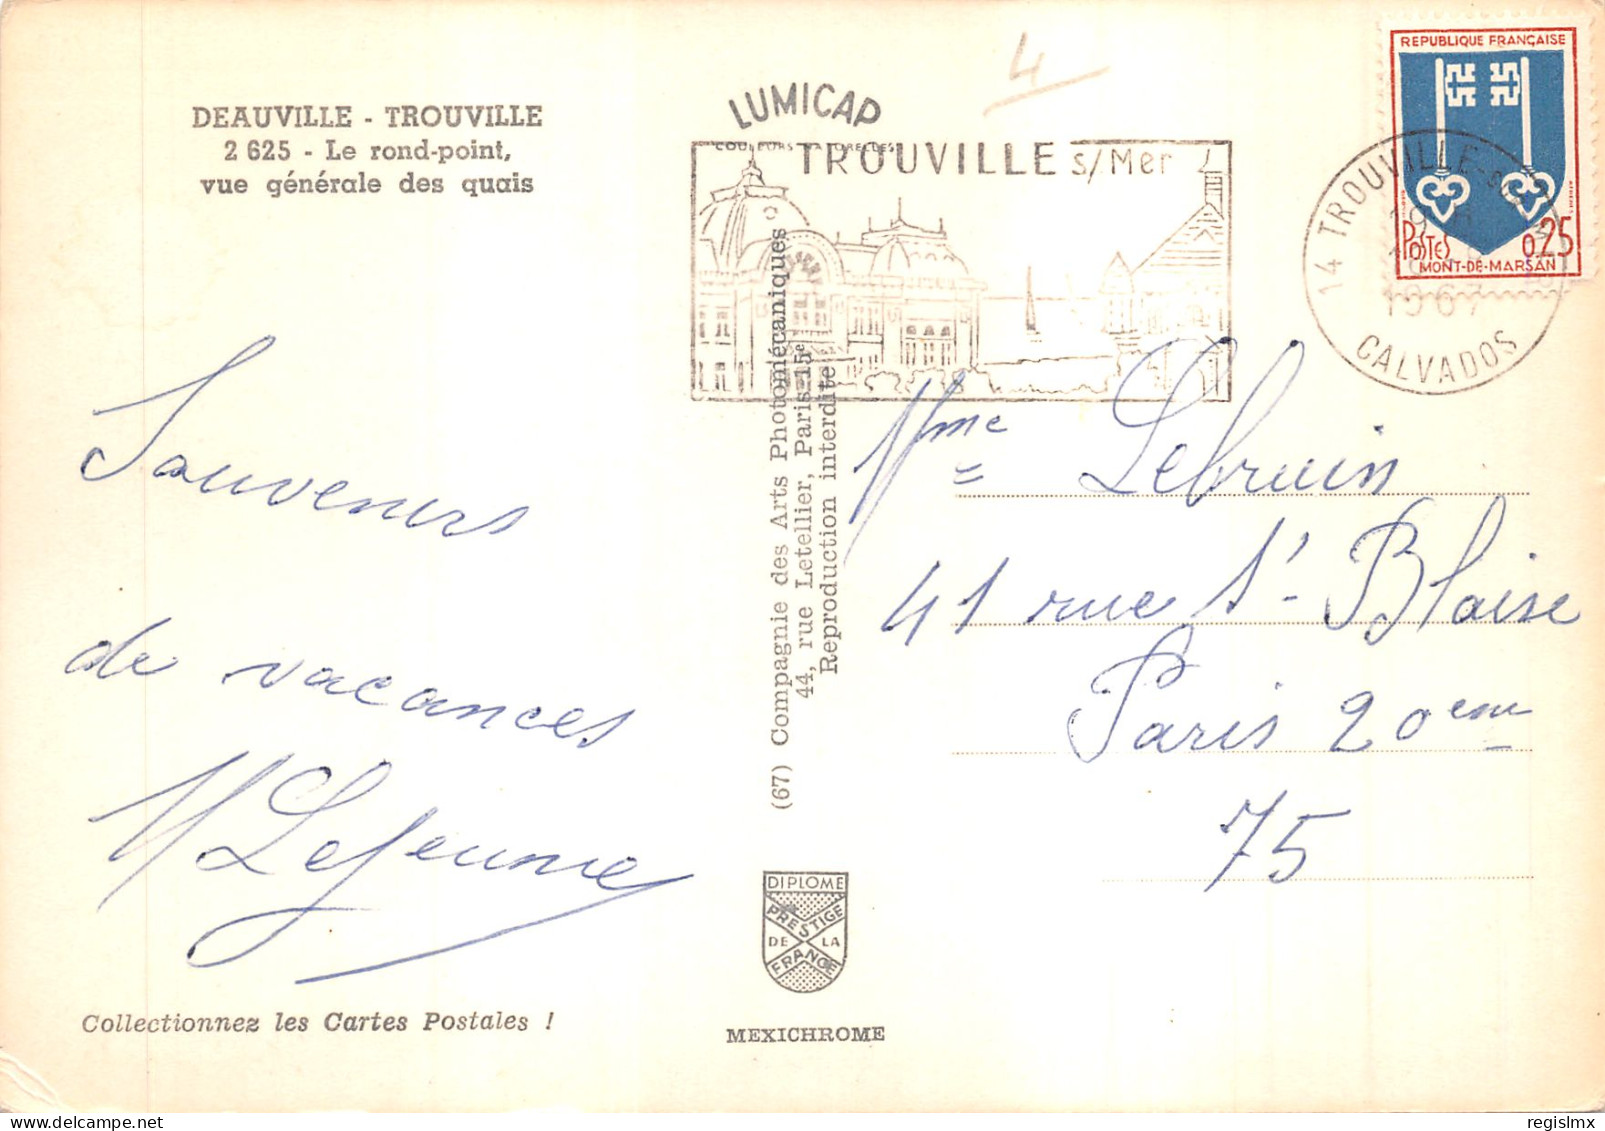 DEAUVILLE - TROUVILLE
2 625 - Le rond-point,
vue générale des quais
Souvenirs
de vacances
M Lejeune
Collectionnez les Cartes Postales !
4
LUMICAP
COULEURS NATURELLES
TROUVILLE s/Mer
(67) Compagnie des Arts Photomécaniques
44, rue Letellier, Paris-15e
Reproduction interdite
DIPLOME
PRESTIGE
DE LA
FRANCE
MEXICHROME
REPUBLIQUE FRANÇAISE
POSTES 0,25
MONT-DE-MARSAN
14 TROUVILLE-SUR-M
19 H
1967
CALVADOS
Mme Lebruin
41 rue St Blaise
Paris 20eme
75
regislmx